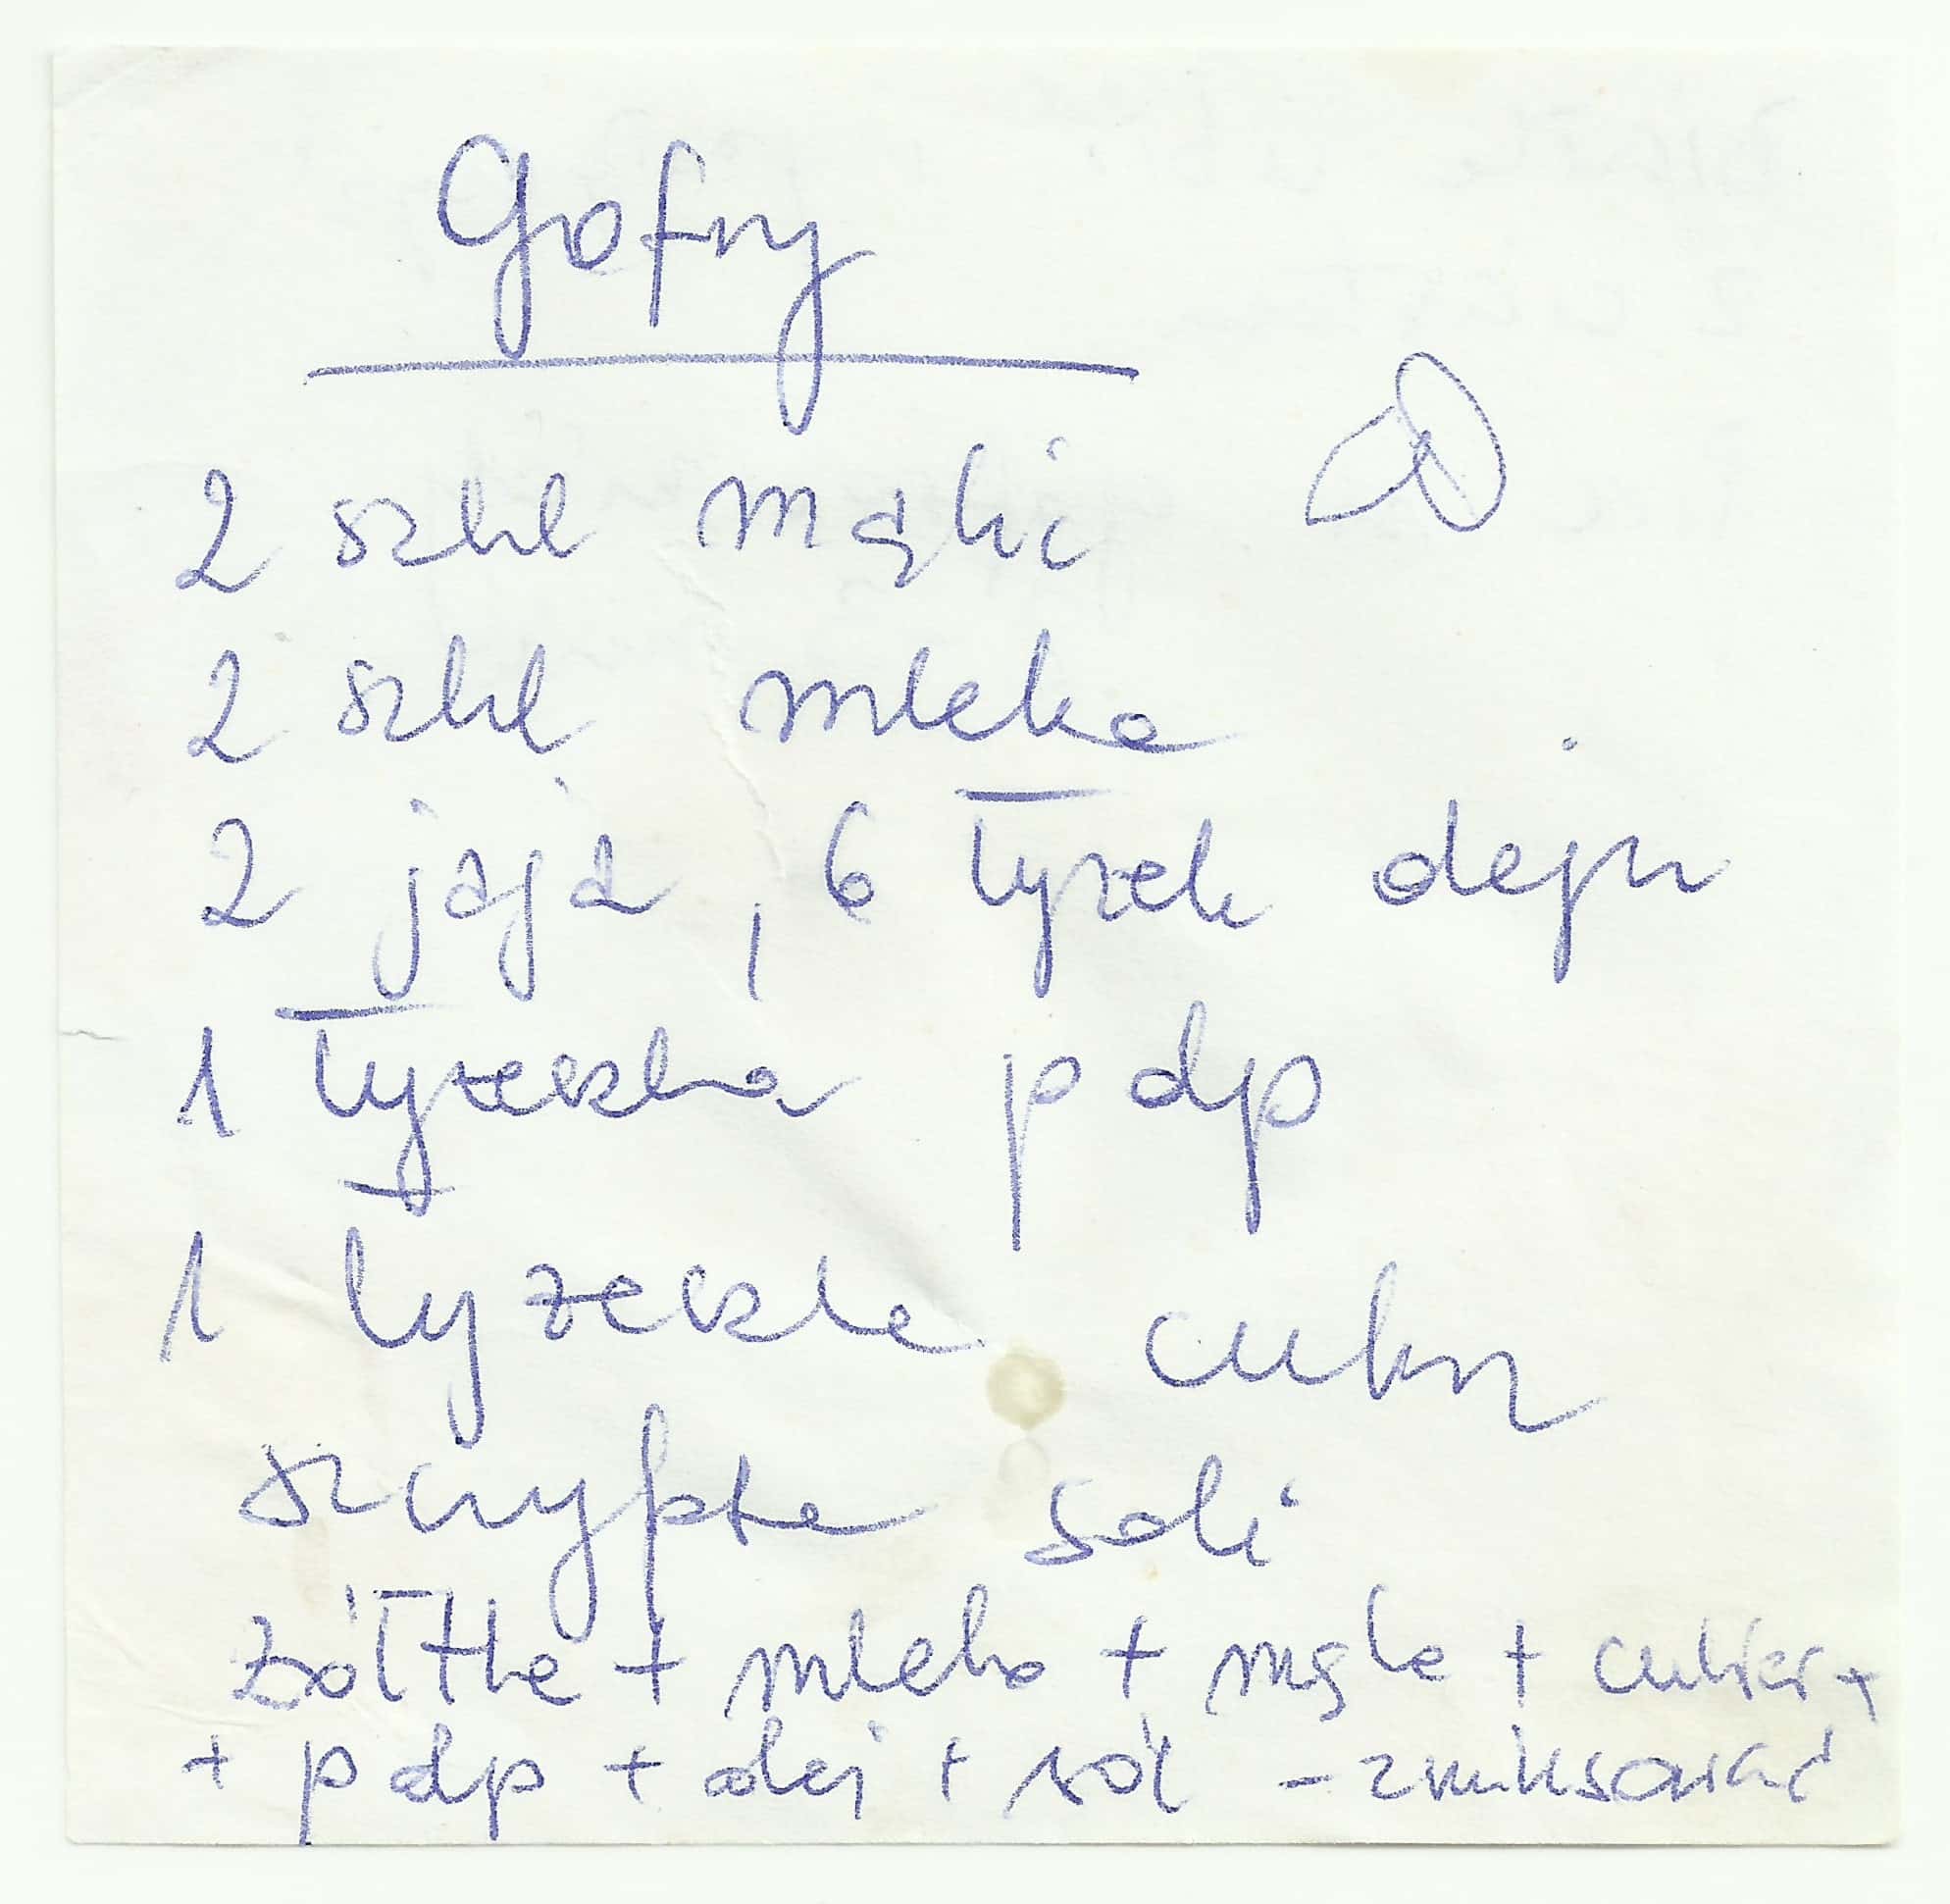 Gofry
2 szkl mąki
2 szkl mleka
2 jaja, 6 łyżek oleju
1 łyżeczka p dp
1 łyżeczka cukru
szczypta soli
żółtka + mleko + mąka + cukier +
+ p dp + olej + sól - zmiksować